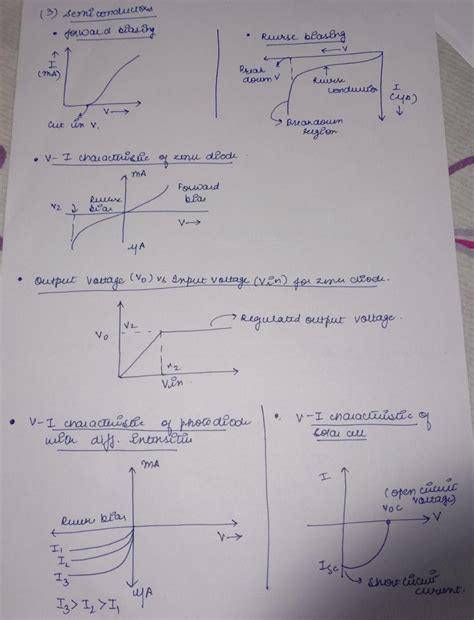 (3) Semiconductors
• forward biasing
I
(mA)
Cut in V.
V
• Reverse biasing
V
Breakdown V
Reverse conduction
I
(μA)
Breakdown region
• V-I characteristic of zener diode
mA
Forward bias
Reverse bias
Vz
V
μA
• Output voltage (Vo) vs Input voltage (Vin) for zener diode.
Vo
Vz
Regulated output voltage.
Vz
Vin
• V-I characteristic of photodiode
with diff. Intensities
mA
Reverse bias
V
I1
I2
I3
μA
I3 > I2 > I1
• V-I characteristic of
solar cell
I
(open circuit voltage)
Voc
V
Isc
Short circuit
current.